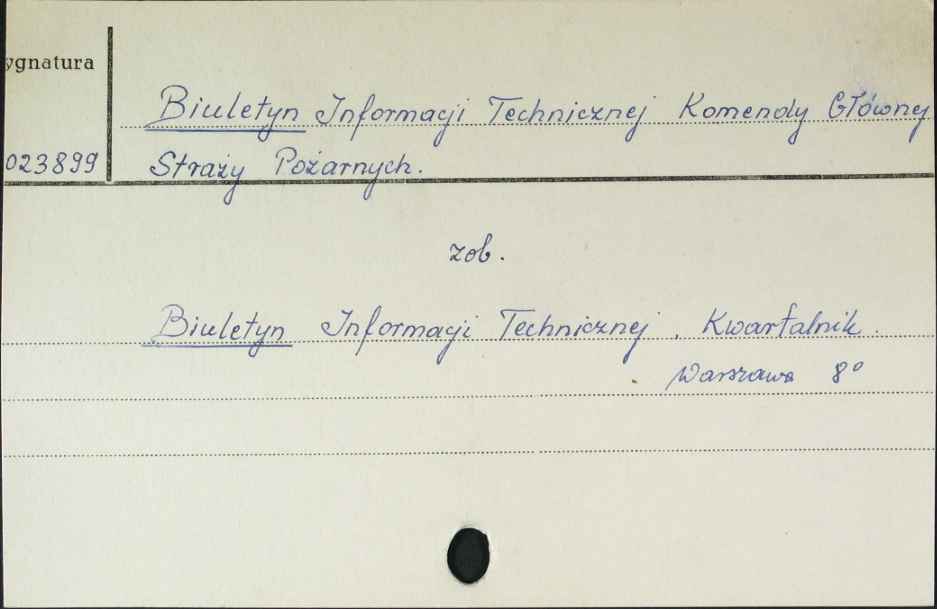 ygnatura
Biuletyn Informacji Technicznej Komendy Głównej
023899 Straży Pożarnych.
zob.
Biuletyn Informacji Technicznej. Kwartalnik.
Warszawa 8º